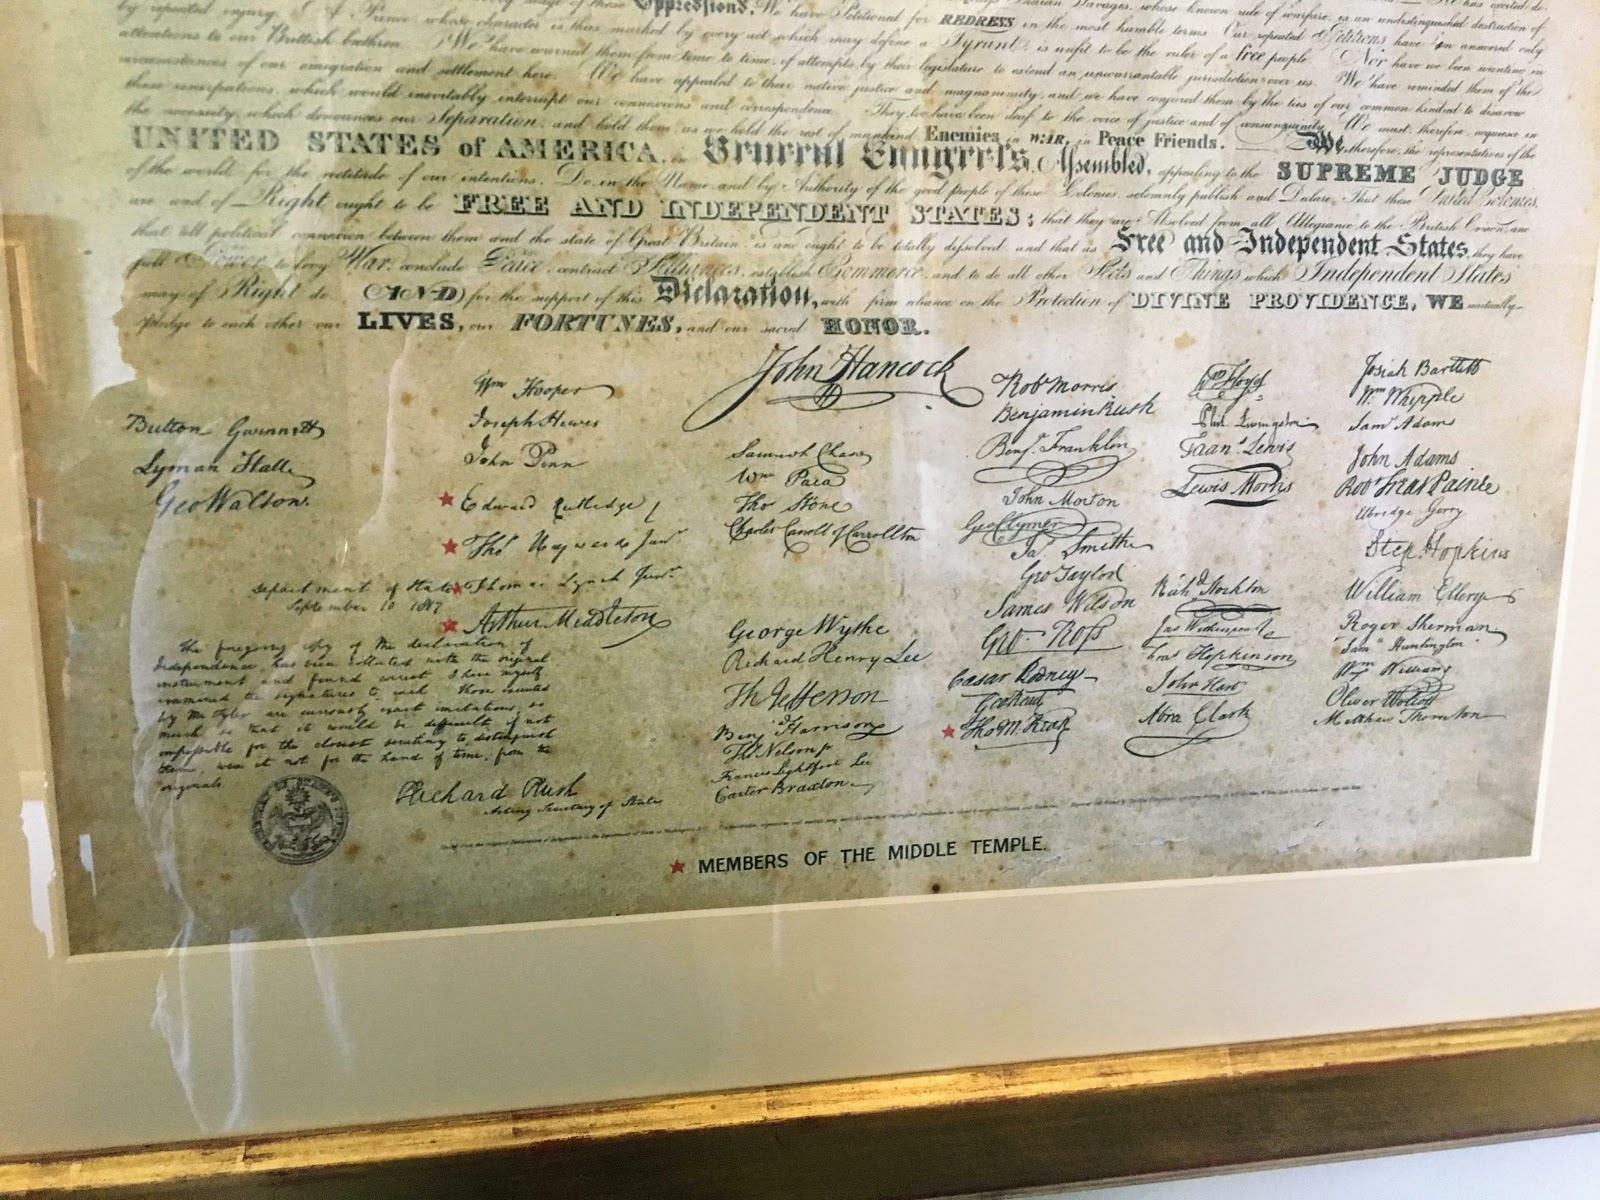 Oppressions, We have Petitioned for REDRESS in the most humble terms Our repeated Petitions have answered only
by repeated injury. A Prince whose character is thus marked by every act which may define a Tyrant, is unfit to be the ruler of a free people. Nor have we been wanting in
attentions to our Brittish brethren. We have warned them from time to time, of attempts by their legislature to extend an unwarrantable jurisdiction over us. We have reminded them of the
circumstances of our emigration and settlement here. We have appealed to their native justice and magnanimity, and we have conjured them by the ties of our common kindred to disavow
these usurpations, which would inevitably interrupt our connexions and correspondence. They too have been deaf to the voice of justice and of consanguinity. We must, therefore, acquiesce in
the necessity, which denounces our Separation, and hold them, as we hold the rest of mankind Enemies in WAR, in Peace Friends. We, therefore, the representatives of the
UNITED STATES of AMERICA, in General Congress, Assembled, appealing to the SUPREME JUDGE
of the world, for the rectitude of our intentions, Do, in the Name and by Authority of the good people of these Colonies, solemnly publish and Declare, That these United Colonies,
are and of Right ought to be FREE AND INDEPENDENT STATES; that they are Absolved from all Allegiance to the British Crown, and
that all political connexion between them and the state of Great Britain, is and ought to be totally dissolved and that as Free and Independent States, they have
full Power to levy War, conclude Peace, contract Alliances, establish Commerce, and to do all other Acts and Things which Independent States
may of Right do. AND for the support of this Declaration, with firm reliance on the Protection of DIVINE PROVIDENCE, WE mutually
pledge to each other our LIVES, our FORTUNES, and our sacred HONOR.
John Hancock
Button Gwinnett
Lyman Hall
Geo Walton.
Wm Hooper
Joseph Hewes
John Penn
★ Edward Rutledge
★ Thos Heyward Junr
★ Thomas Lynch Junr
★ Arthur Middleton
Samuel Chase
Wm Paca
Thos Stone
Charles Carroll of Carrollton
George Wythe
Richard Henry Lee
Th Jefferson
Benj Harrison
Thos Nelson jr
Francis Lightfoot Lee
Carter Braxton
Robt Morris
Benjamin Rush
Benj. Franklin
John Morton
Geo Clymer
Jas. Smith
Geo Taylor
James Wilson
Geo Ross
Caesar Rodney
Geo Read
★ Tho M:Kean
Wm Floyd
Phil. Livingston
Frans Lewis
Lewis Morris
Richd Stockton
Jno Witherspoon
Fras Hopkinson
John Hart
Abra Clark
Josiah Bartlett
Wm Whipple
Saml Adams
John Adams
Robt Treat Paine
Elbridge Gerry
Step. Hopkins
William Ellery
Roger Sherman
Saml Huntington
Wm Williams
Oliver Wolcott
Matthew Thornton
Department of State
September 10 1817
The foregoing copy of the declaration of
Independence has been collated with the original
instrument and found correct. I have myself
examined the signatures to each. Those executed
by Mr Tyler are curiously exact imitations, so
much so that it would be difficult if not
impossible for the closest scrutiny to distinguish
them, were it not for the hand of time, from the
originals
Richard Rush
Acting Secretary of State
★ MEMBERS OF THE MIDDLE TEMPLE.